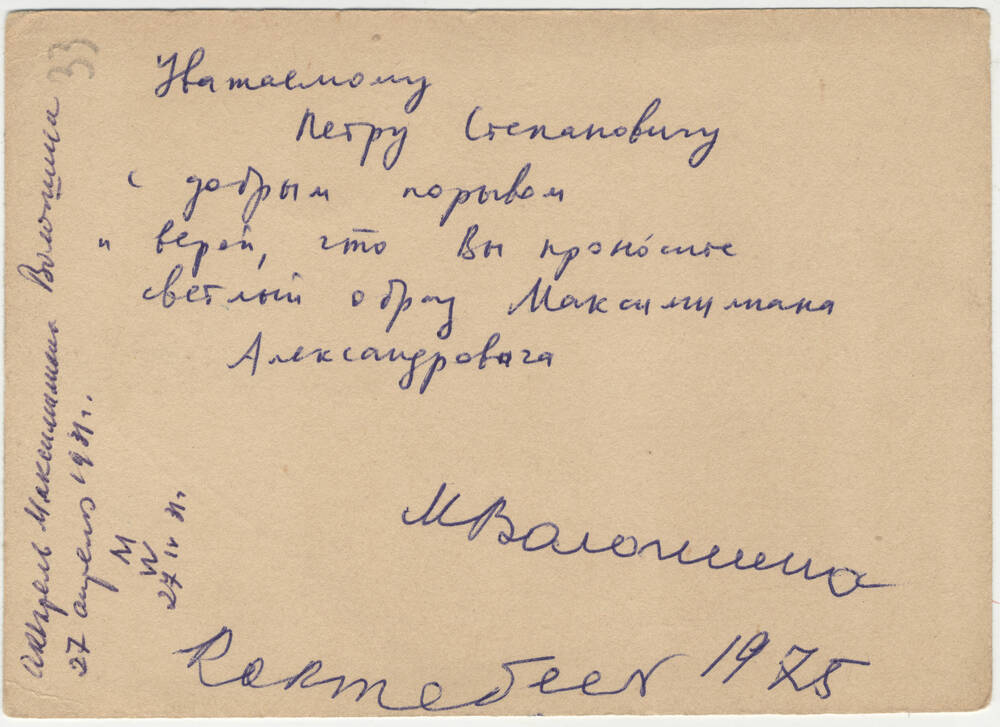 Уважаемому
Петру Степановичу
с добрым порывом
и верой, что Вы проно́сите
светлый образ Максимилиана
Александровича
МВолошина
Коктебель 1975
Акварель Максимилиана Волошина
27 апреля 1931 г.
М
W
27 IV 31 г
33